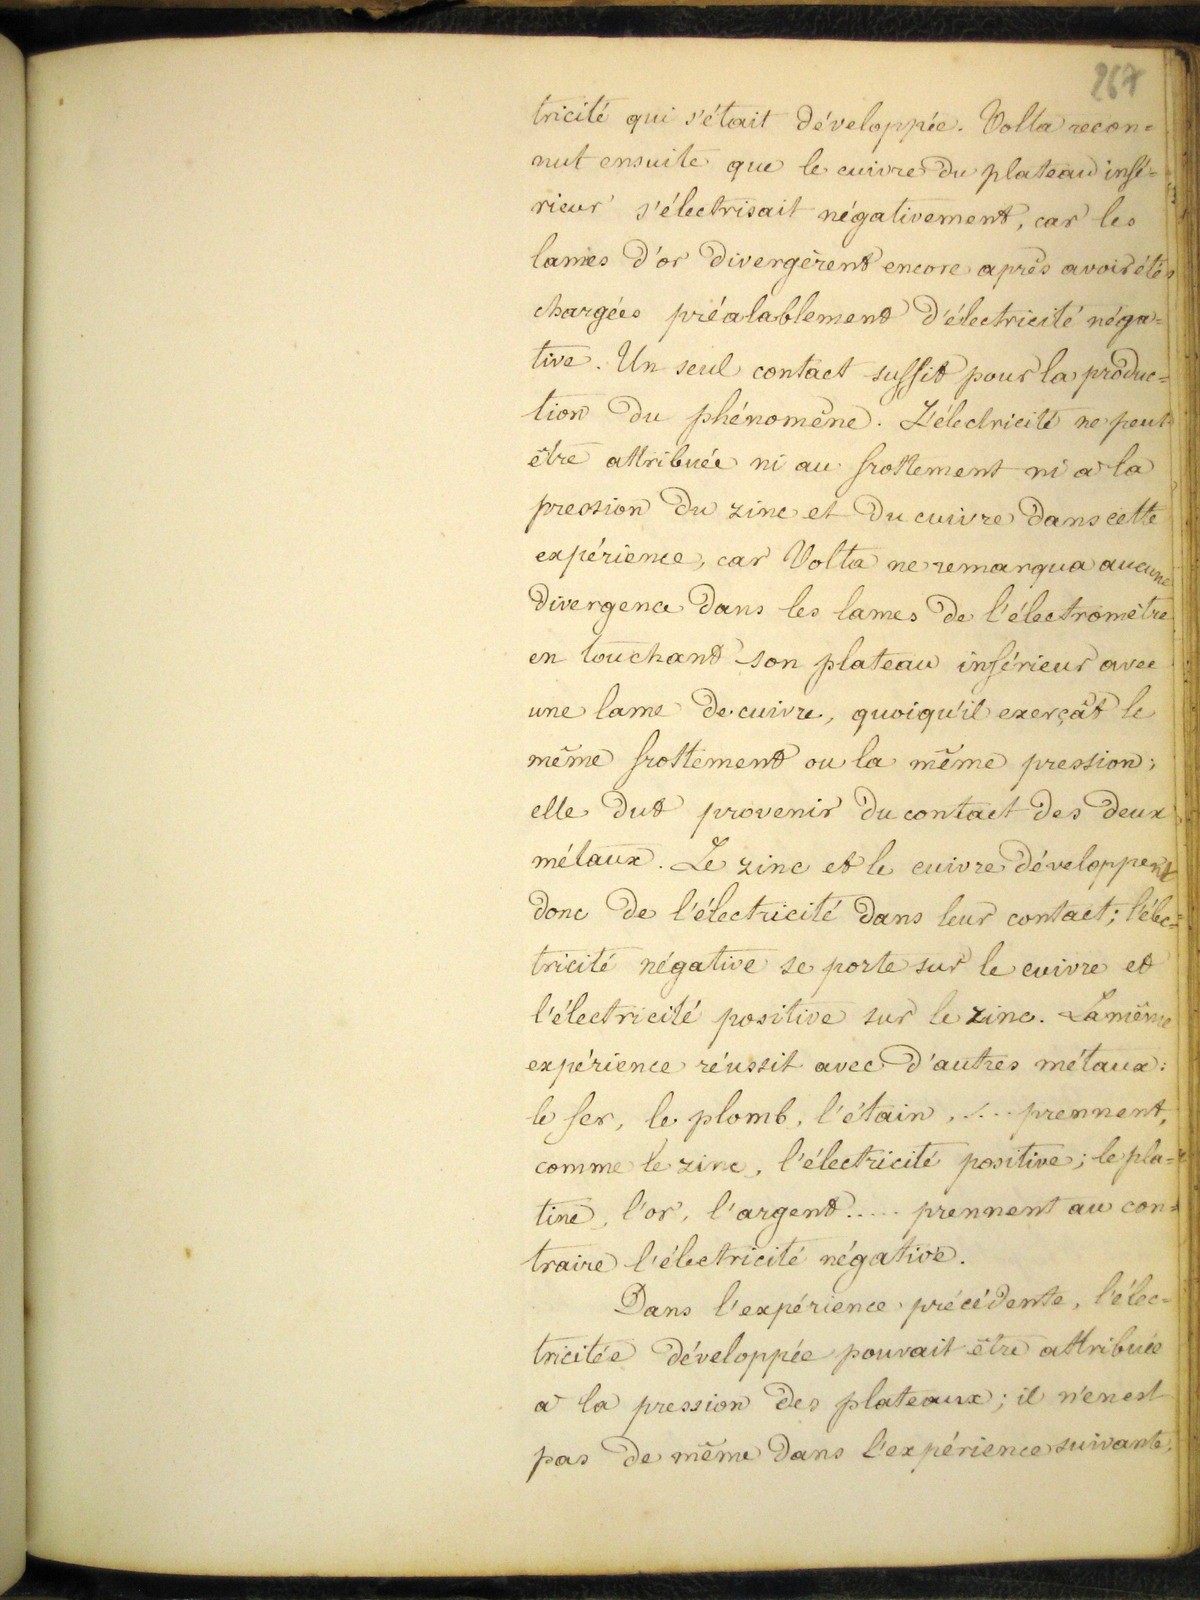 267
tricité qui s'était développée. Volta recon=
nut ensuite que le cuivre du plateau infé=
rieur s'électrisait négativement, car les
lames d'or divergèrent encore après avoir étés
chargées préalablement d'électricité néga=
tive. Un seul contact suffit pour la produc=
tion du phénomène. L'électricité ne peut
être attribuée ni au frottement ni à la
pression du zinc et du cuivre dans cette
expérience, car Volta ne remarqua aucune
divergence dans les lames de l'électromètre
en touchant son plateau inférieur avec
une lame de cuivre, quoiqu'il exerçât le
même frottement ou la même pression;
elle dut provenir du contact des deux
métaux. Le zinc et le cuivre développent
donc de l'électricité dans leur contact; l'élec=
tricité négative se porte sur le cuivre et
l'électricité positive sur le zinc. La même
expérience réussit avec d'autres métaux:
le fer, le plomb, l'étain, .... prennent,
comme le zinc, l'électricité positive; le pla=
tine, l'or, l'argent..... prennent au con=
traire l'électricité négative.
Dans l'expérience précédente, l'élec=
tricitée développée pouvait être attribuée
à la pression des plateaux; il n'en est
pas de même dans l'expérience suivante.